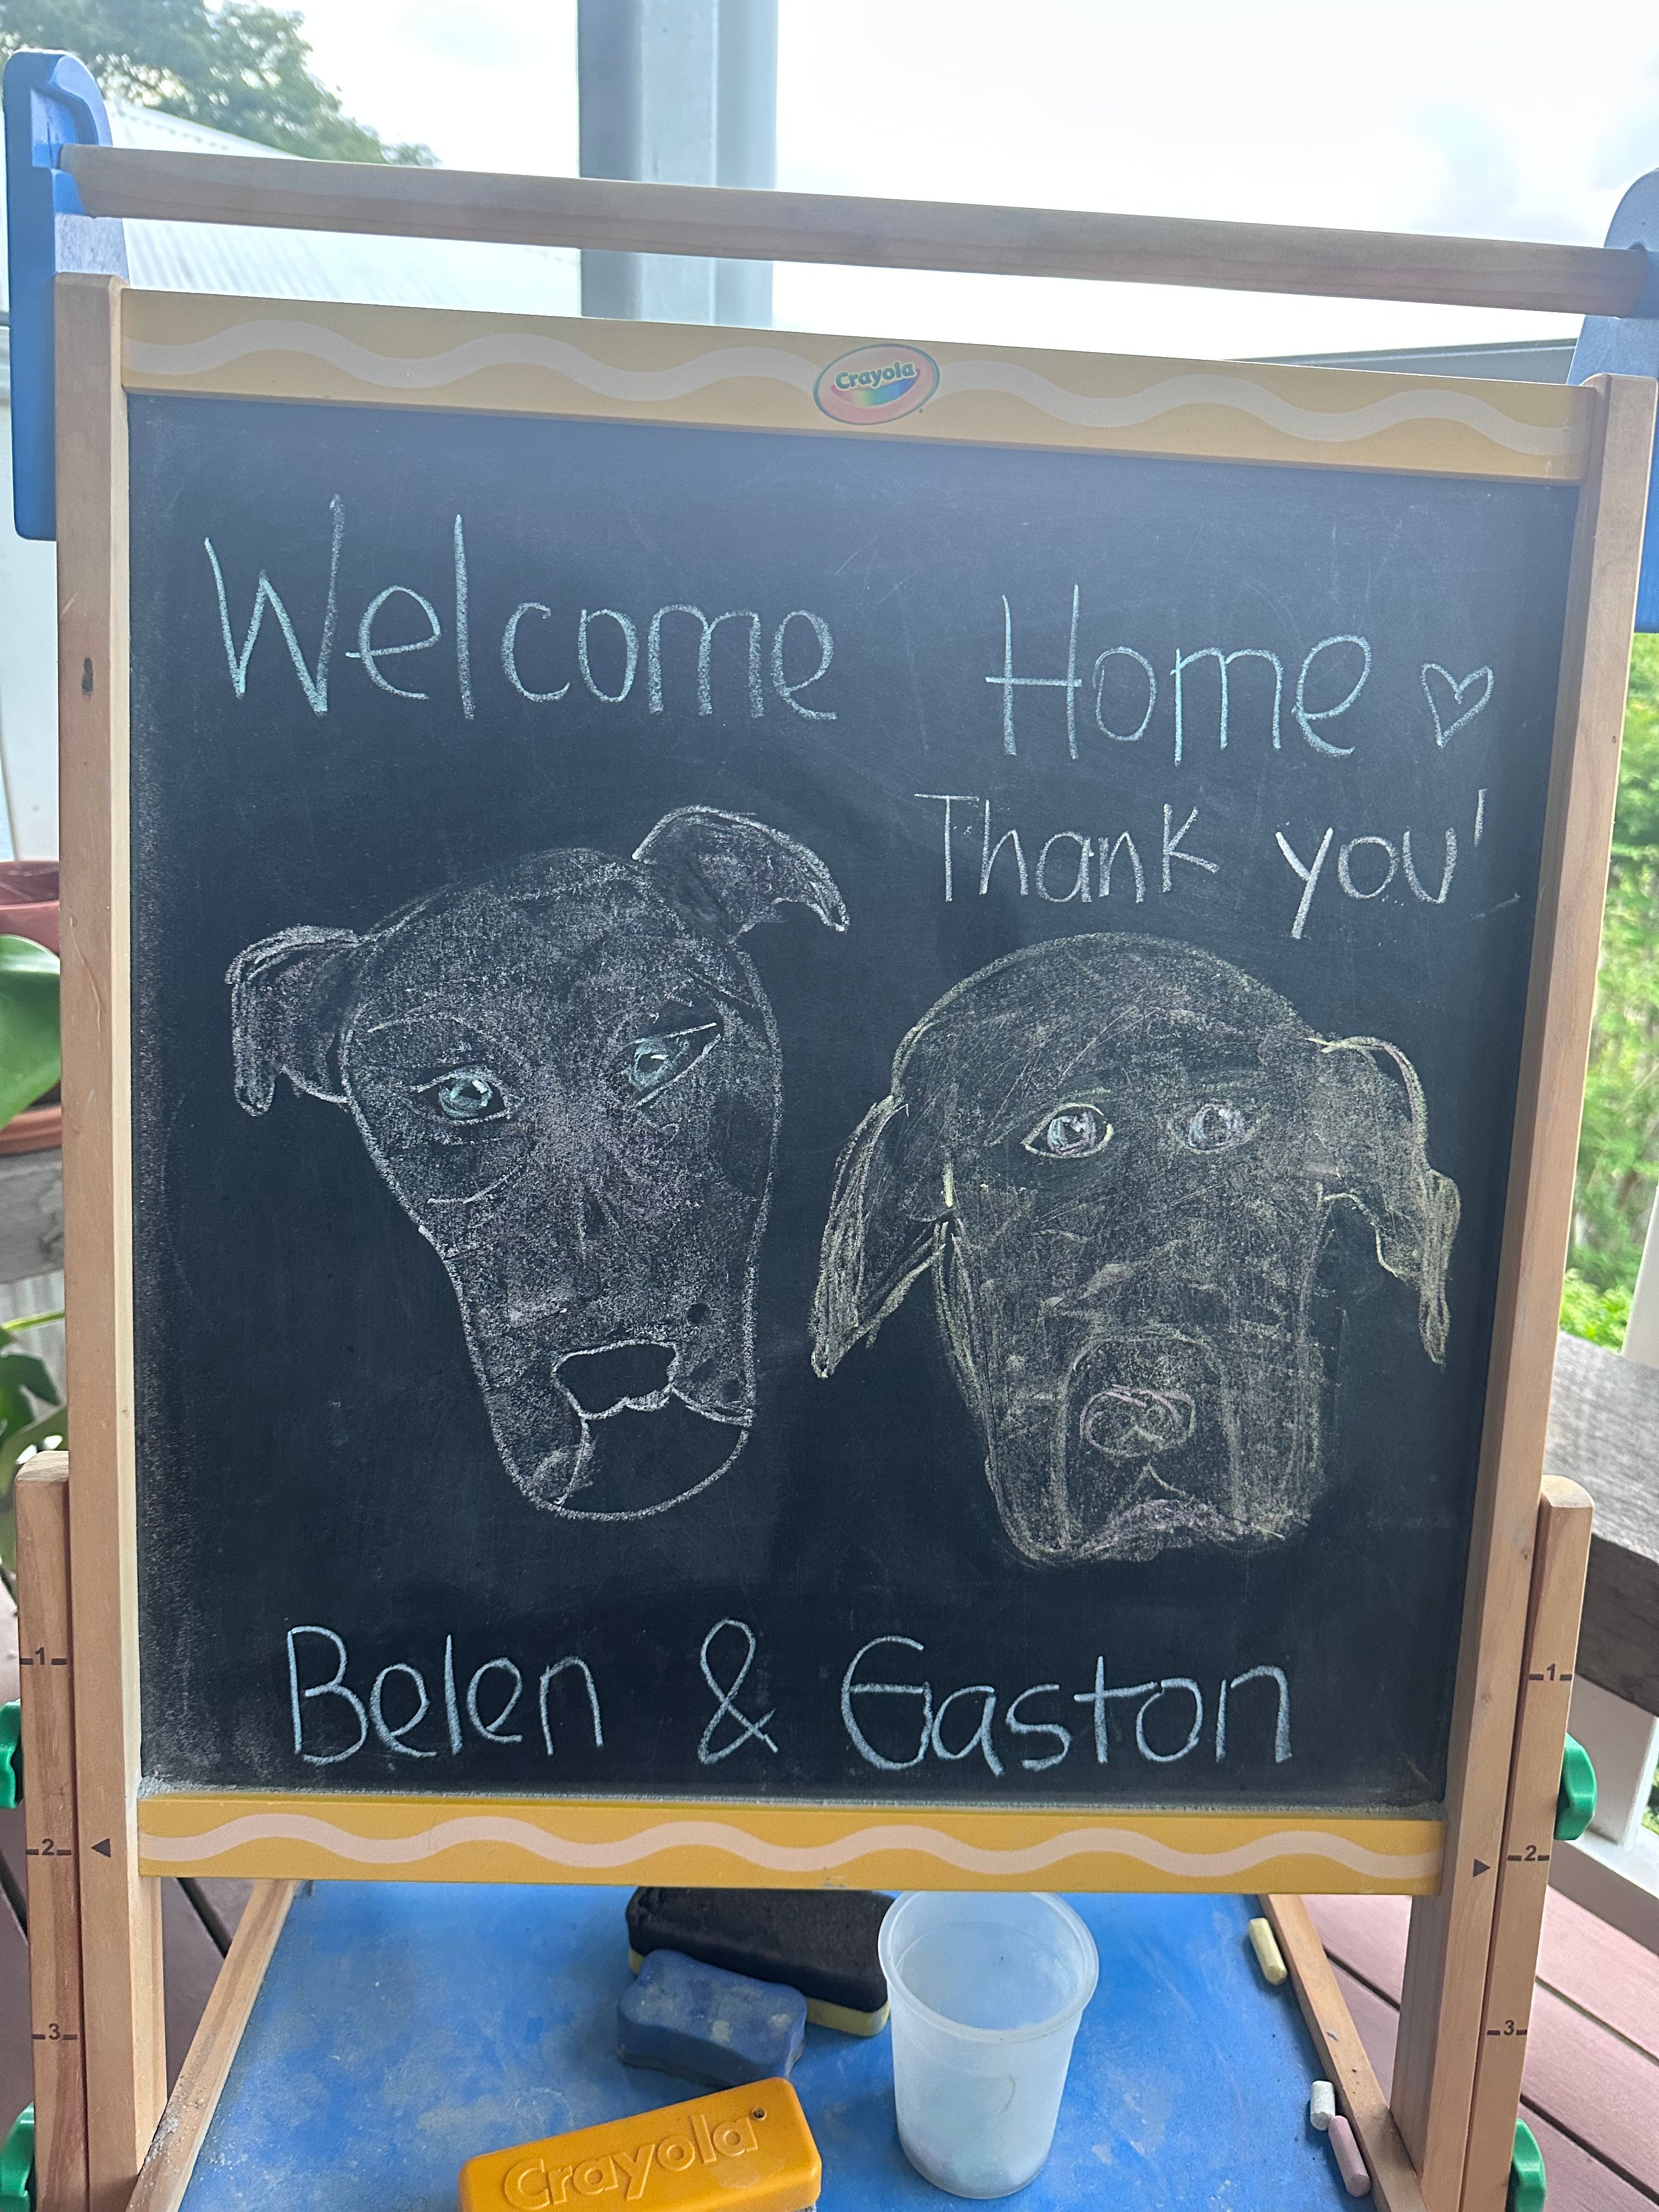 Crayola
Welcome Home ♡
Thank you!
Belen & Gaston
1 1
2 2
3 3
Crayola